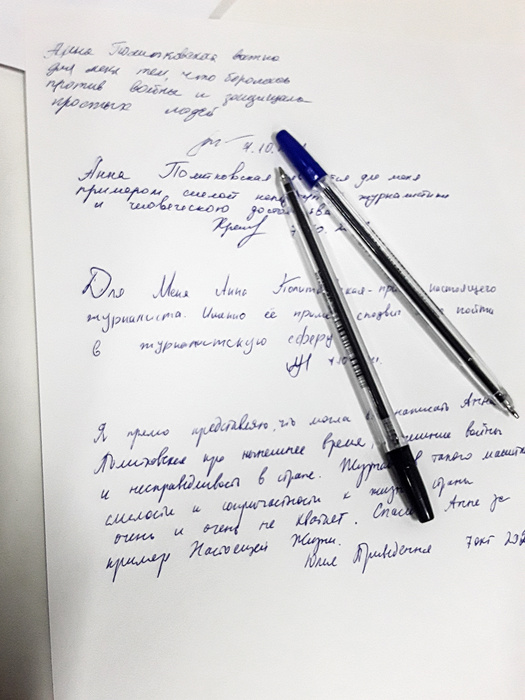 Анна Политковская важна
для меня тем, что боролась
против войны и защищала
простых людей
7.10.
Анна Политковская для меня
примером смелой журналистики
и человеческого достоинства
Для Меня Анна Политковская - настоящего
журналиста. Именно её пойти
в журналистскую сферу
Я прямо представляю, что могла написать Анна
Политковская про нынешнее время, нынешние войны
и несправедливость в стране. такого масштаба
смелости и сопричастности к жизни страны
очень и очень не хватает. Спасибо Анне за
пример Настоящей Жизни.
Юлия 7 окт